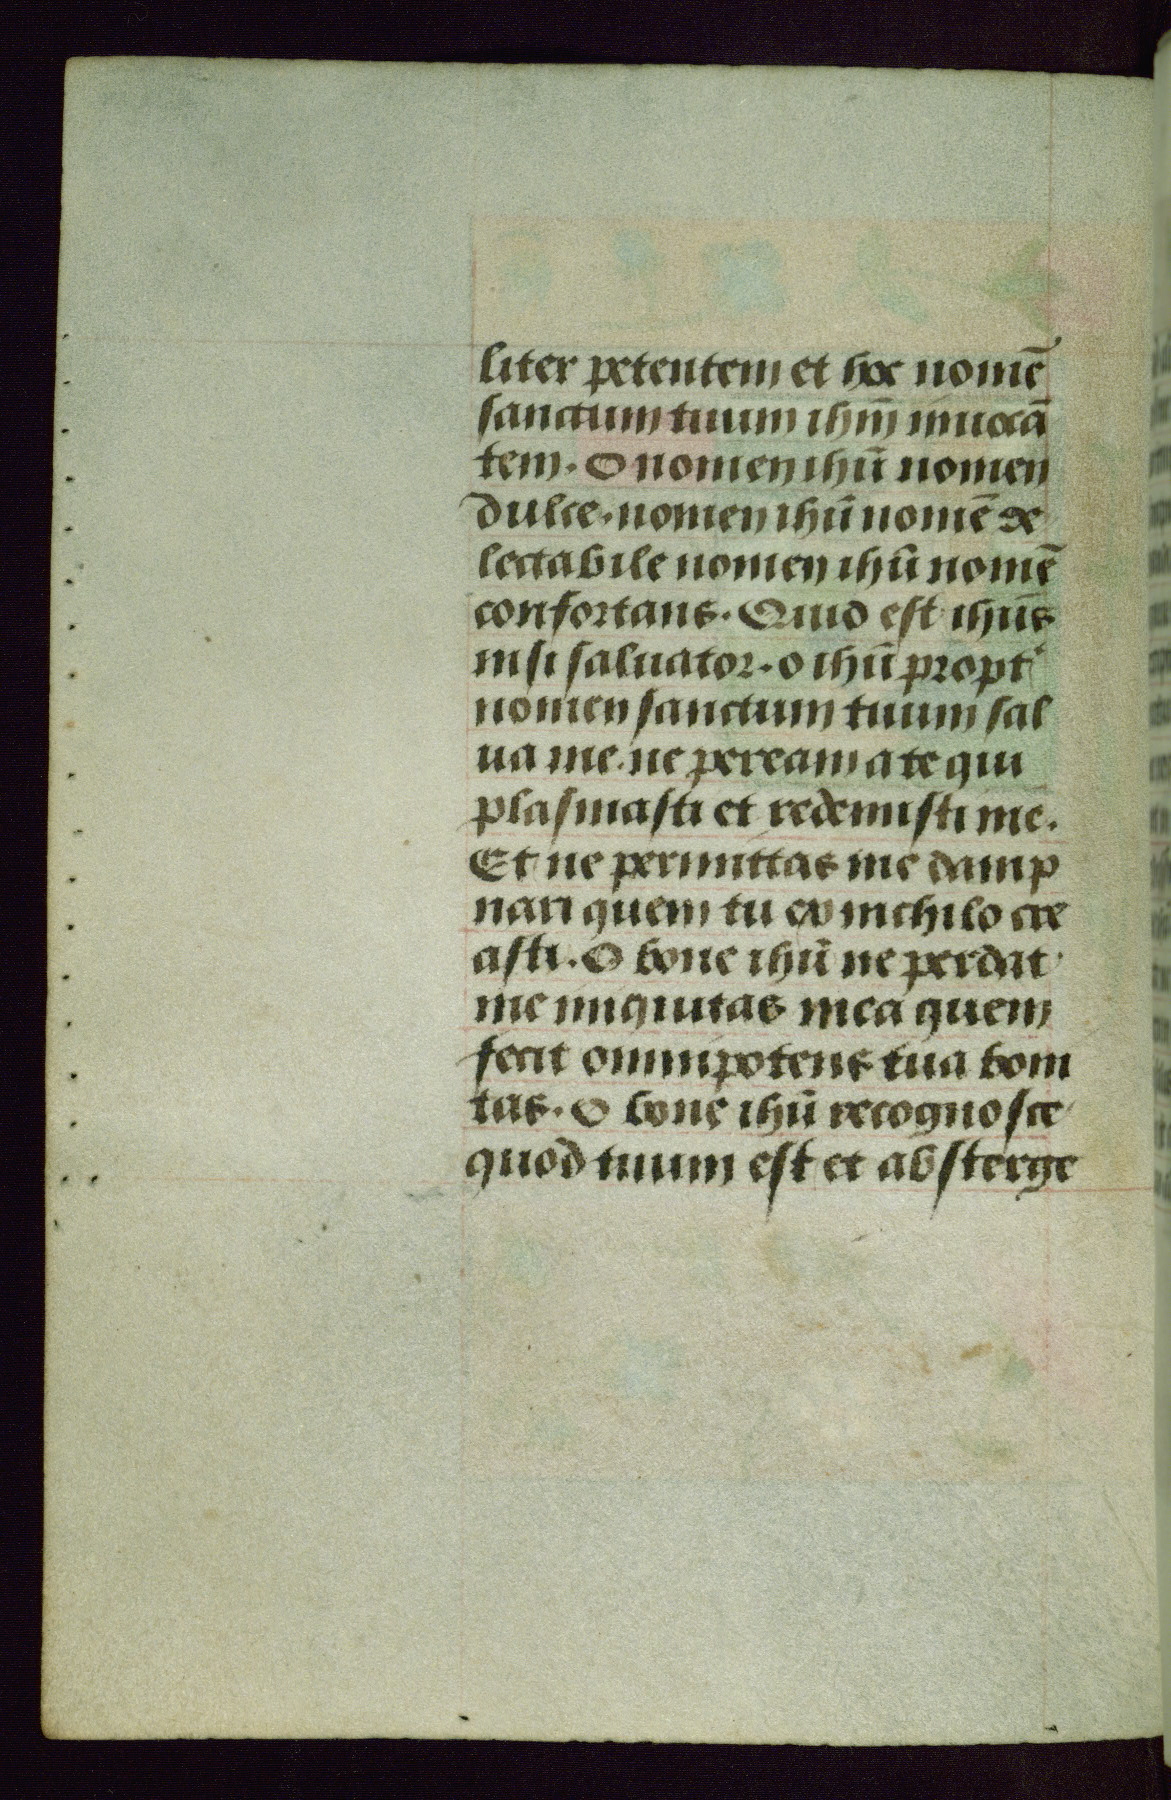 liter petentem et hoc nomē
sanctum tuum ihm̄ inuocā
tem. O nomen ihū nomen
dulce. nomen ihū nomē de
lectabile nomen ihū nomē
confortans. Quid est ihūs
nisi saluator. o ihū propt'
nomen sanctum tuum sal
ua me. ne peream a te qui
plasmasti et redemisti me.
Et ne permittas me damp
nari quem tu ex nichilo cre
asti. O bone ihū ne perdat
me iniquitas mea quem
fecit omnipotens tua boni
tas. O bone ihū recognosce
quod tuum est et absterge